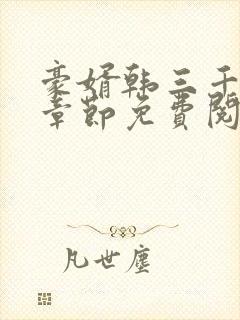 豪婿韩三千
章节免费阅
凡世尘